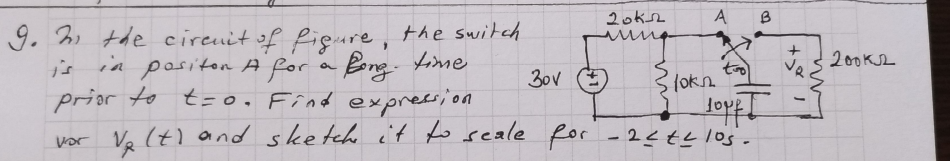 9. In the circuit of figure, the switch
is in positon A for a long time
prior to t=0. Find expression
vor V_R(t) and sketch it to scale for -2≤t≤10s.
20kΩ A B
30V + 10kΩ t=0 + V_R - 200kΩ
10μf